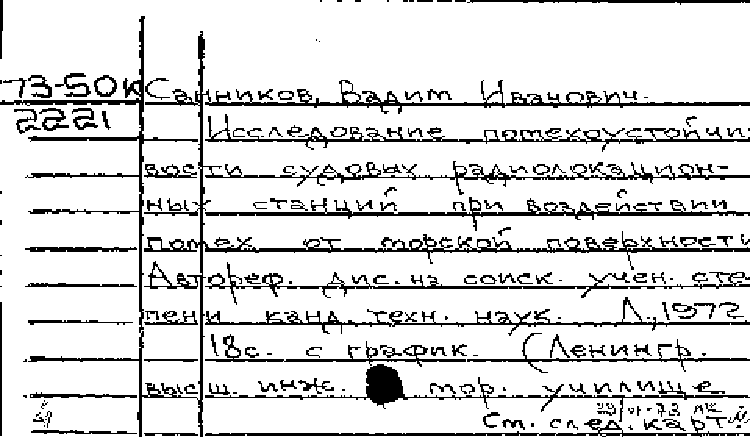 73-50К Санников, Вадим Иванович.
2221 Исследование помехоустойчи-
вости судовых радиолокацион-
ных станций при воздействии
помех от морской поверхности
Автореф. дис. на соиск. учен. сте
пени канд. техн. наук. Л., 1972
18с. с график. (Ленингр.
высш. инж. мор. училище
См. след. карт.